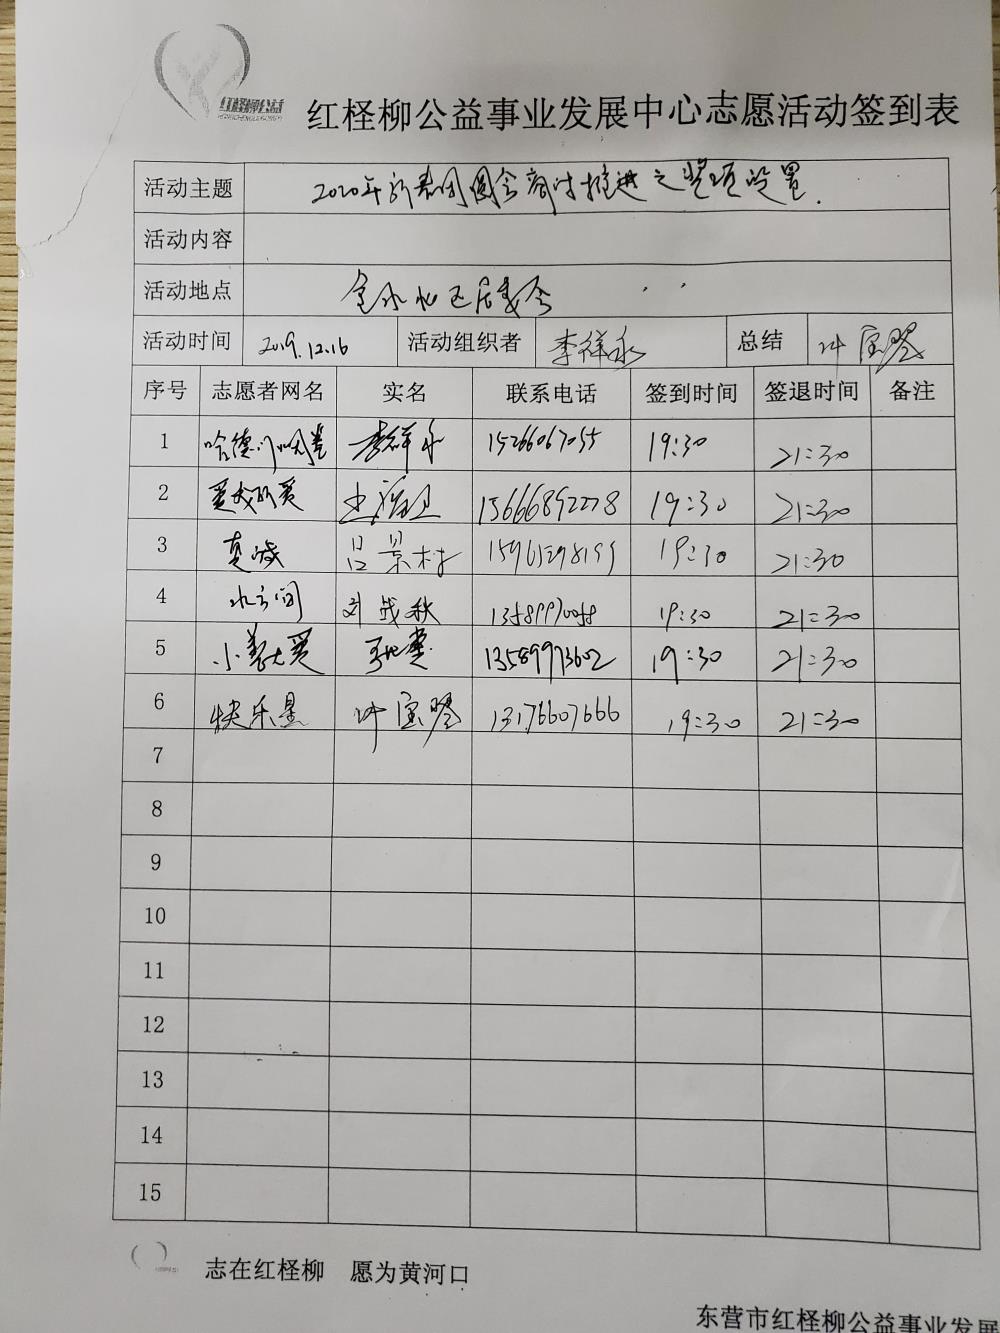 红柽柳公益事业发展中心志愿活动签到表
活动主题 2020年新春团圆会商讨推进之奖项设置.
活动内容
活动地点 居委会
活动时间 2019.12.16 活动组织者 李祥永 总结 许宝琴
序号 志愿者网名 实名 联系电话 签到时间 签退时间 备注
1 哈德门 李祥永 15266067055 19:30 21:30
2 爱我所爱 15666892278 19:30 21:30
3 真诚 吕景村 19:30 21:30
4 水之间 刘战秋 19:30 21:30
5 小美大爱 13589973602 19:30 21:30
6 快乐星 许宝琴 13176607666 19:30 21:30
7
8
9
10
11
12
13
14
15
志在红柽柳 愿为黄河口
东营市红柽柳公益事业发展